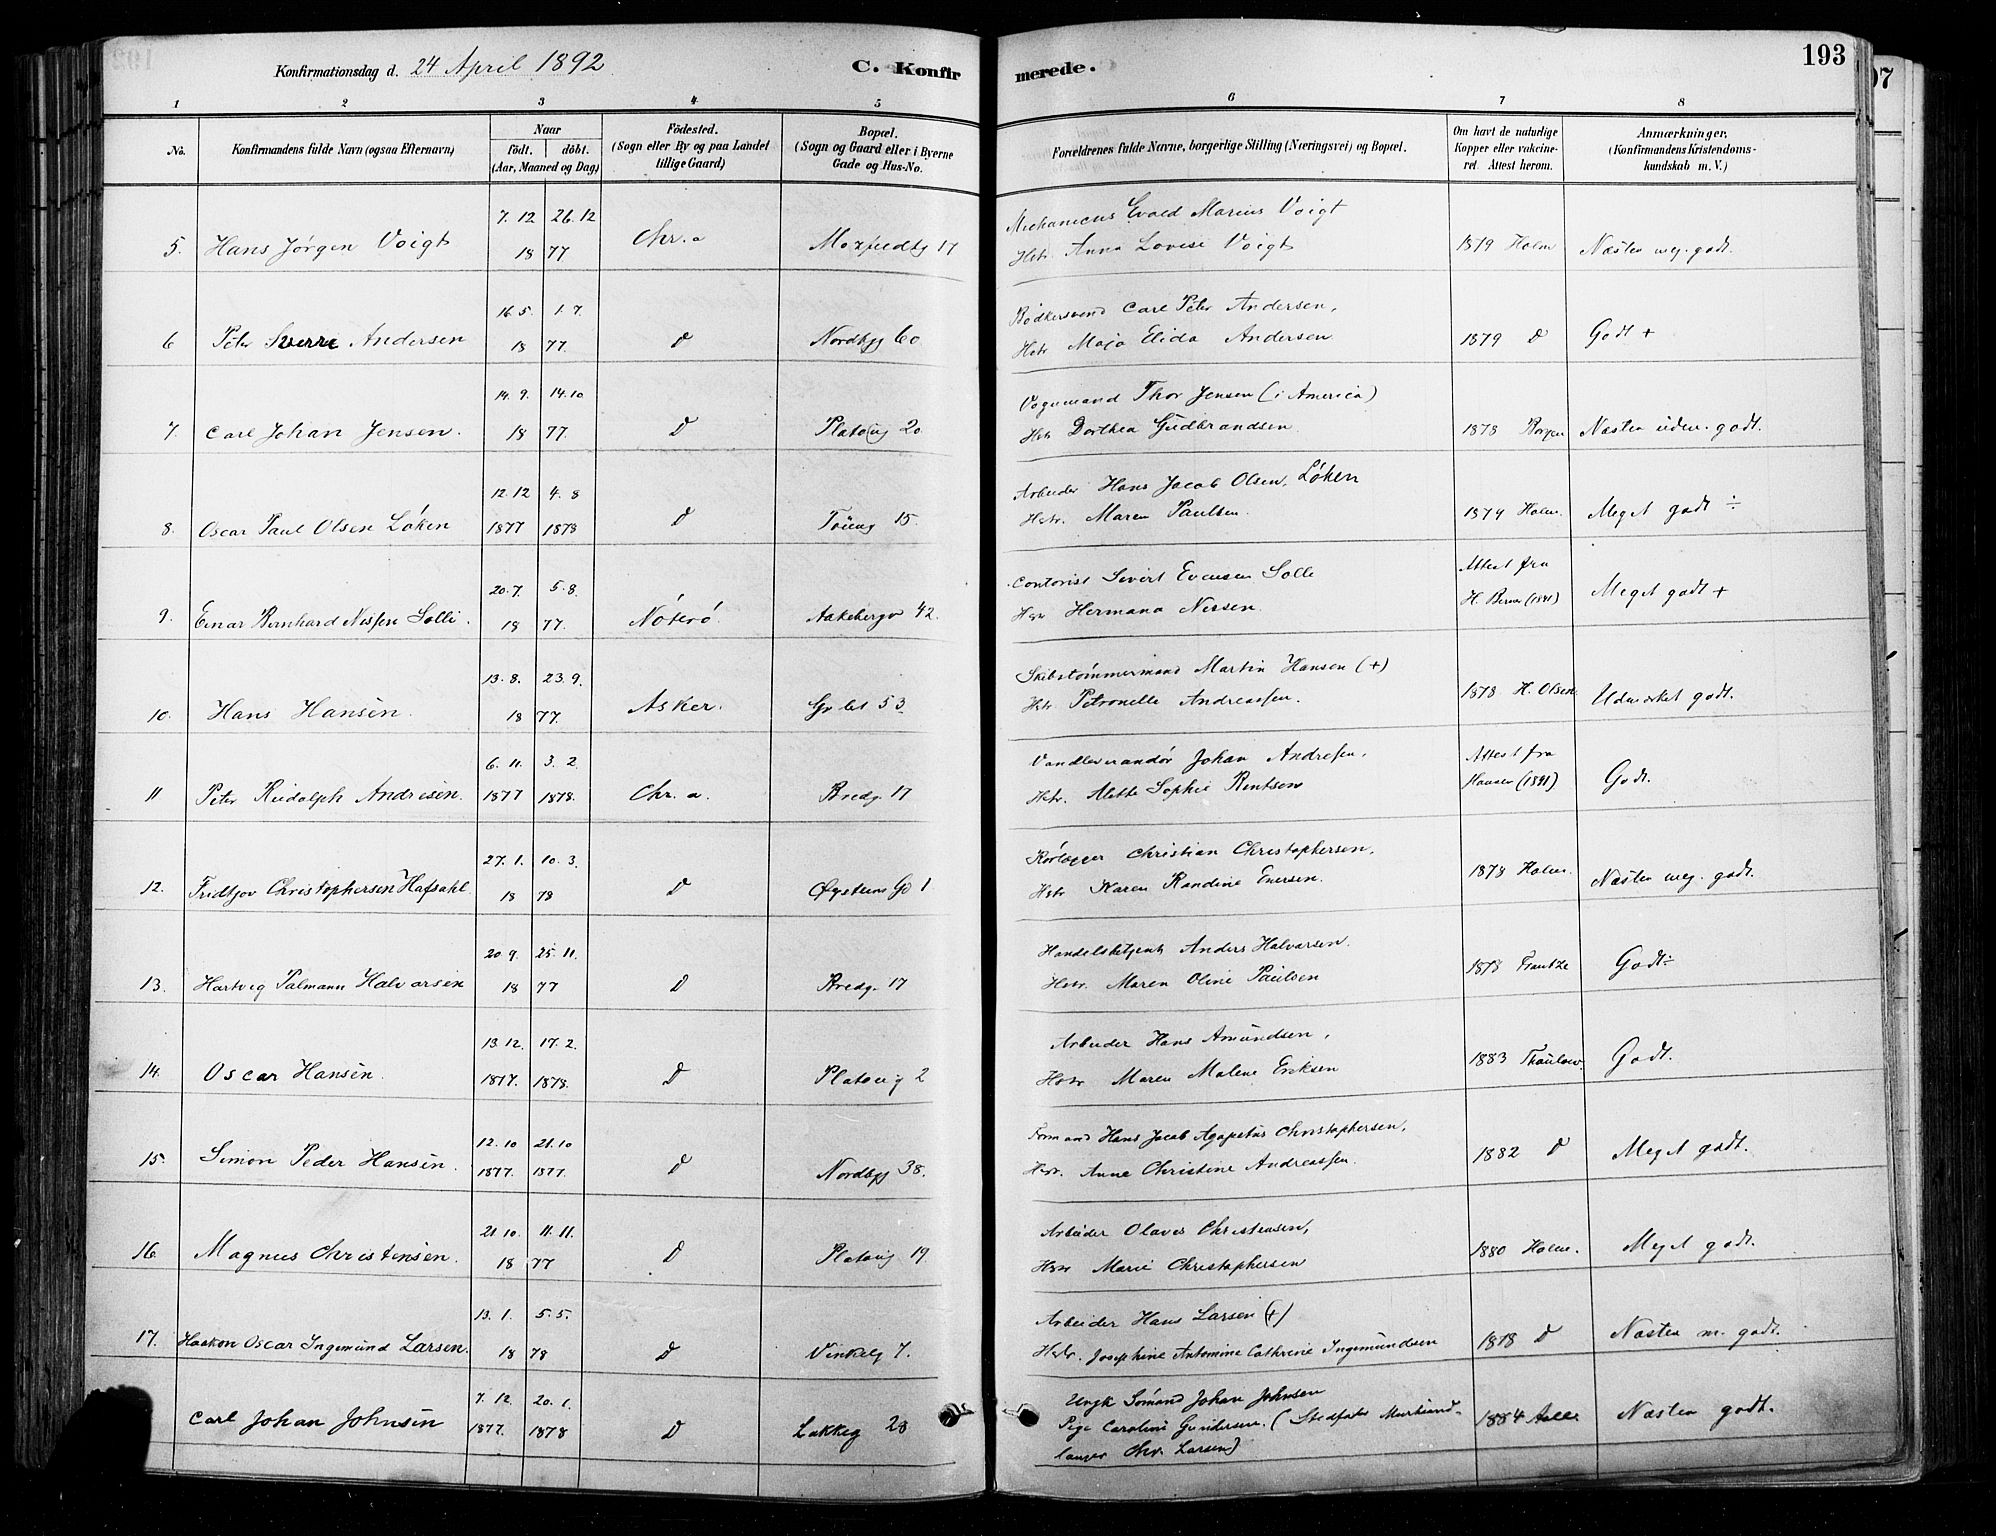 Konfirmationsdag d. 24 April 1892
C. Konfirmerede.
193
1 2 3 4 5 6 7 8
No.
Konfirmandens fulde Navn (ogsaa Efternavn)
Naar
födt. döbt.
(Aar, Maaned og Dag)
Födested.
(Sogn eller By og paa Landet
tillige Gaard)
Bopæl.
(Sogn og Gaard eller i Byerne
Gade og Hus-No.
Forældrenes fulde Navne, borgerlige Stilling (Næringsvei) og Bopæl.
Om havt de naturlige
Kopper eller vakcine-
ret. Attest herom.
Anmærkninger,
(Konfirmandens Kristendoms-
kundskab m. V.)
7. 12 26. 12 Mechanicus Evald Marius Voigt
5. Hans Jørgen Voigt 18 77 Chr.a 17 Hstr. Anna Lovise Voigt 1879 Holm Næsten meg. godt.
16. 5. 1. 7. Bødkersvend Carl Peter Andersen,
6 Peter Sverre Andersen 18 77. D Nordbyg 60 Hstr Maja Elida Andersen 1879 D Godt +
14. 9. 14. 10 Vognmand Thor Jensen (i America)
7. Carl Johan Jensen. 18 77. D Platoug 20 Hstr Dorthea Gudbrandsen. 1878 Næsten udm. godt.
12. 12 4. 8 Arbeider Hans Jacob Olsen, Løken
8. Oscar Paul Olsen Løken 1877 1878 D Töieng 15. Hstr. Maren Paulsen. 1879 Holm. Meget godt ÷
20. 7. 5. 8. Contorist Sivert Evensen Solli Attest fra
9. Einar Bernhard Nissen Solli. 18 77. Nöterö Aakebergv 42. Hstr Hermana Nissen. (1891) Meget godt +
13. 8. 23. 9. Skibstömmermand Martin Hansen (+)
10. Hans Hansen. 18 77. Asker. 53. Hstr Petronelle Andreassen. 1878 H. Olsen. Udmærket godt.
6. 11. 3. 2. Vandleverandør Johan Andresen, Attest fra
11 Peter Rudolph Andresen. 1877 1878. Chr. a. Bredg. 17 Hstr. Alette Sophie Hansen (1891) Godt.
27. 1. 10. 3. Rörlægger Christian Christophersen,
12. Fridtjov Christophersen Hafsahl 18 78 D Øysteins G 1 Hstr Karen Randine Enersen. 1878 Holm. Næsten meg. godt.
20. 9. 25. 11. Handelsbetjent Anders Halvorsen.
13. Hartvig Palmann Halvorsen 18 77 D Bredg. 17 Hstr. Maren Oline Paulsen 1878 Frantze Godt ÷
13. 12. 17. 2. Arbeider Hans Amundsen,
14. Oscar Hansen. 1877. 1878. D Platoug 2 Hstr Maren Malene Eriksen 1883 Thaulow. Godt.
12. 10 21. 10 Formand Hans Jacob Agapetus Christophersen,
15. Simon Peder Hansen. 1877. 1877. D Nordbyg 38. Hstr. Anne Christine Andreassen. 1882 D Meget godt.
21. 10. 11. 11. Arbeider Olaves Christensen,
16. Magnus Christensen. 18 77 D Platoug 19. Hstr Marie Christophersen 1880 Holm. Meget godt.
13. 1. 5. 5. Arbeider Hans Larsen (+)
17. Haakon Oscar Ingemund Larsen. 18 78 D Vinkelg 7. Hstr. Josephine Antomine Cathrine Ingemundsen 1878 D Næsten m. godt.
7. 12. 20. 1. Ungk Sömand Johan Johnsen
Carl Johan Johnsen 1877. 1878 D Lakkeg 28 Pige Caroline Gundersen. (Stedfader
1884 Næsten godt.
Chr. Larsen)